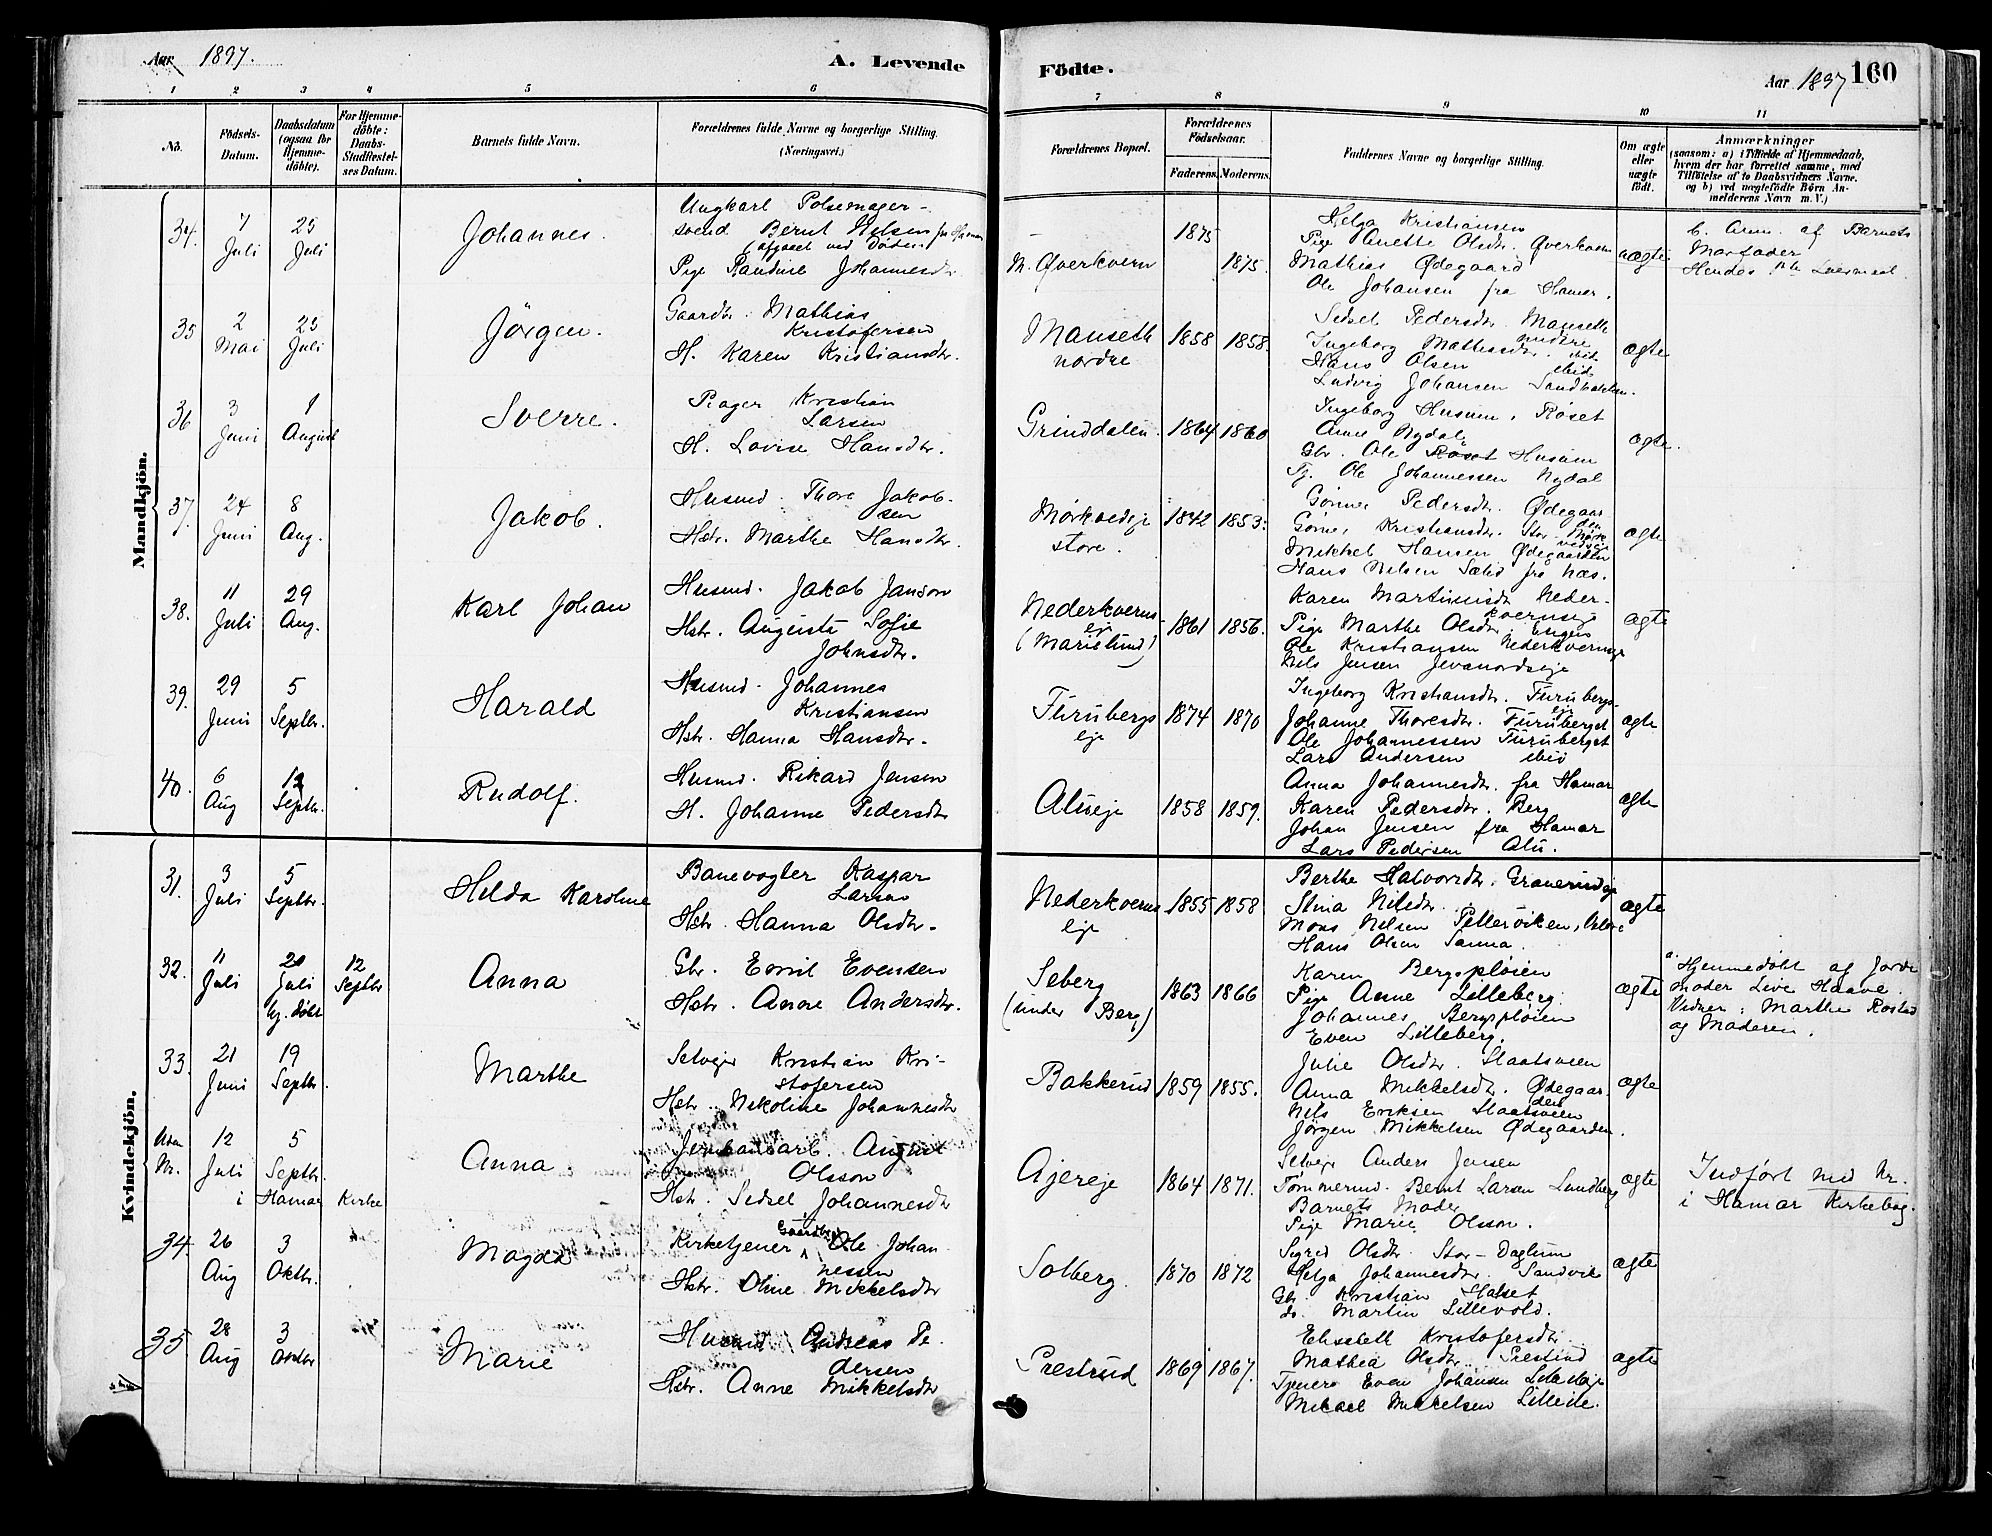 Aar 1897.
A. Levende
Födte.
Aar 1897
160
1 2 3 4 5 6 7 8 9 10 11
No.
Födsels-
Datum.
Daabsdatum
(ogsaa for
Hjemme-
döbte).
For Hjemme-
döbte:
Daabs-
Stadfæstel-
ses Datum.
Barnets fulde Navn.
Forældrenes fulde Navne og borgerlige Stilling.
(Næringsvei.)
Forældrenes Bopæl.
Forældrenes
Födselsaar.
Faderens.
Moderens.
Faddernes Navne og borgerlige Stilling.
Om ægte
eller
uægte
födt.
Anmærkninger
(saasom: a) i Tilfælde af Hjemmedaab,
hvem der har forrettet samme, med
Tilföielse af to Daabsvidners Navne.
og b) ved uægtefödte Börn An-
melderens Navn m. V.)
Mandkjön.
34. 7 Juli 25 Juli
Johannes.
Ungkarl Pölsemager-
svend Bernt Nilsen fra Hamar
(opgivet ved Döden)
Pige Pauline Johannesdr.
N. Øverkvern
1875
1875.
Helga Kristiansen
Pige Anette Olsdr. Øverkvern
Mathias Ødegaard
Ole Johansen fra Hamar.
uægte.
b. Anm. af Barnets
Morfader
35 2 Mai 25 Juli
Jörgen.
Gaardbr. Mathias
Kristofersen
H. Karen Kristiansdr.
Manseth
nordre
1858 1858.
Sidsel Pedersdr. Manseth
nordre
Ingeborg Mathisdr. ibid
Hans Olsen ibid
Ludvig Johansen Sandbakken.
ægte
36 3 Juni 1 August
Sverre.
Bager Kristian
Larsen
H. Lovise Hansdr.
Grinddalen.
1864 1860
Ingeborg Husum, Röset
Anne Nydal
Gbr. Ole Röset Husum
Tj. Ole Johannessen Nydal
ægte.
37. 24 Juni 8 Aug.
Jakob.
Husmd. Thore Jakob-
sen
Hstr. Marthe Hansdr.
Mörkvedeje
store.
1842 1853.
Gönner Pedersdr. Ødegaar
den
Gönner Kristiansdr. Stor Mörk
vedeje
Mikkel Hansen Ødegaarden
Hans Nilsen Sælid fra Næs.
ægte
38. 11 Juli 29 Aug.
Karl Johan
Husmd. Jakob Janson
Hstr. Augusta Sofie
Johnsdtr.
Nederkverns
eje
(Marielund)
1861 1856.
Karen Martinusdr Neder-
kvernseje
Pige Marthe Olsdtr.
Ole Kristiansen Nederkvernseje
Nils Jensen Jevanordseje
ægte
39. 29 Juni 5 Septbr.
Harald
Husmd. Johannes
Kristiansen
Hstr. Hanna Hansdtr.
Furubergs
eje
1874 1870
Ingeborg Kristiansdr. Furubergs-
eje
Johanne Thoresdtr. Furuberget
Ole Johannessen Furuberget
Lars Andersen ibid
ægte
40. 6 Aug 12 Septbr.
Rudolf.
Husmd. Rikard Jensen
H. Johanne Pedersdtr
Alueje
1858 1859.
Anna Johannesdtr. fra Hamar
Karen Pedersdtr. Berg
Johan Jensen fra Hamar
Lars Pedersen Alu.
ægte
Kvindekjön.
31. 3 Juli 5 Septbr.
Hilda Karoline
Banevogter Kaspar
Larsen
Hstr. Hanna Olsdtr.
Nederkverns
eje
1855 1858
Berthe Halvorsdtr. Graverudeje
Stina Nilsdtr.
Mons Nilsen Pettersviken,
Hans Olsen Sanna.
ægte
32. 11 Juli 20 Juli hj. döbt 12 Septbr
Anna
Gbr. Emil Evensen
Hstr. Anne Andersdtr.
Seberg
(under Berg)
1863 1866
Karen Bergspløien
Pige Anne Lilleberg.
Johannes Bergspløien
Even Lilleberg.
ægte
a. Hjemmedöbt af Jorde
moder Live Haave.
Vidner: Marthe Rostad
og Moderen.
33. 21 Juni 19 Septbr.
Marthe
Selvejer Kristian Kri-
stofersen
Hstr. Nikoline Johannesdtr
Bakkerud
1859 1855.
Julie Olsdtr. Slaatsveen
Anna Mikkelsdtr. Ødegaar-
den
Nils Eriksen Slaatsveen
Jörgen Mikkelsen Ødegaarden.
ægte
Uden
Nr. 12 Juli 5 Septbr.
i Hamar Kirke
Anna
Jernbanearb. August
Olsson
Hstr. Sidsel Johannesdtr
Ajereje
1864 1871.
Selvejer Anders Jensen
Tömmermd. Bernt Larsen Lundberg
Barnets Moder
Pige Marie Olsson.
ægte
Indfört med Nr.
i Hamar Kirkebog.
34. 26 Aug 3 Oktbr.
Magda
Kirketjener Gaardbr. Ole Johan
nessen
Hstr. Oline Mikkelsdtr
Solberg.
1870 1872
Sigrid Olsdtr. Stor-Daglum
Helga Johannesdtr. Sandvik
Gbr. Kristian Halset
do. Martin Lillevold.
ægte
35 28 Aug 3 Oktbr
Marie
Husmd Andreas Pe
dersen
Hstr. Anne Mikkelsdtr
Prestrud
1869 1867.
Elisabeth Kristofersdtr.
Mathea Olsdtr. Prestrud
Tjener Even Johansen
Mikael Mikkelsen Lilleeie.
ægte